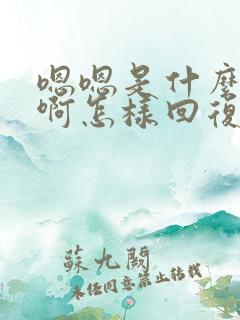 嗯嗯是什麼
啊怎樣回復
蘇九闕
未經同意禁止轉載